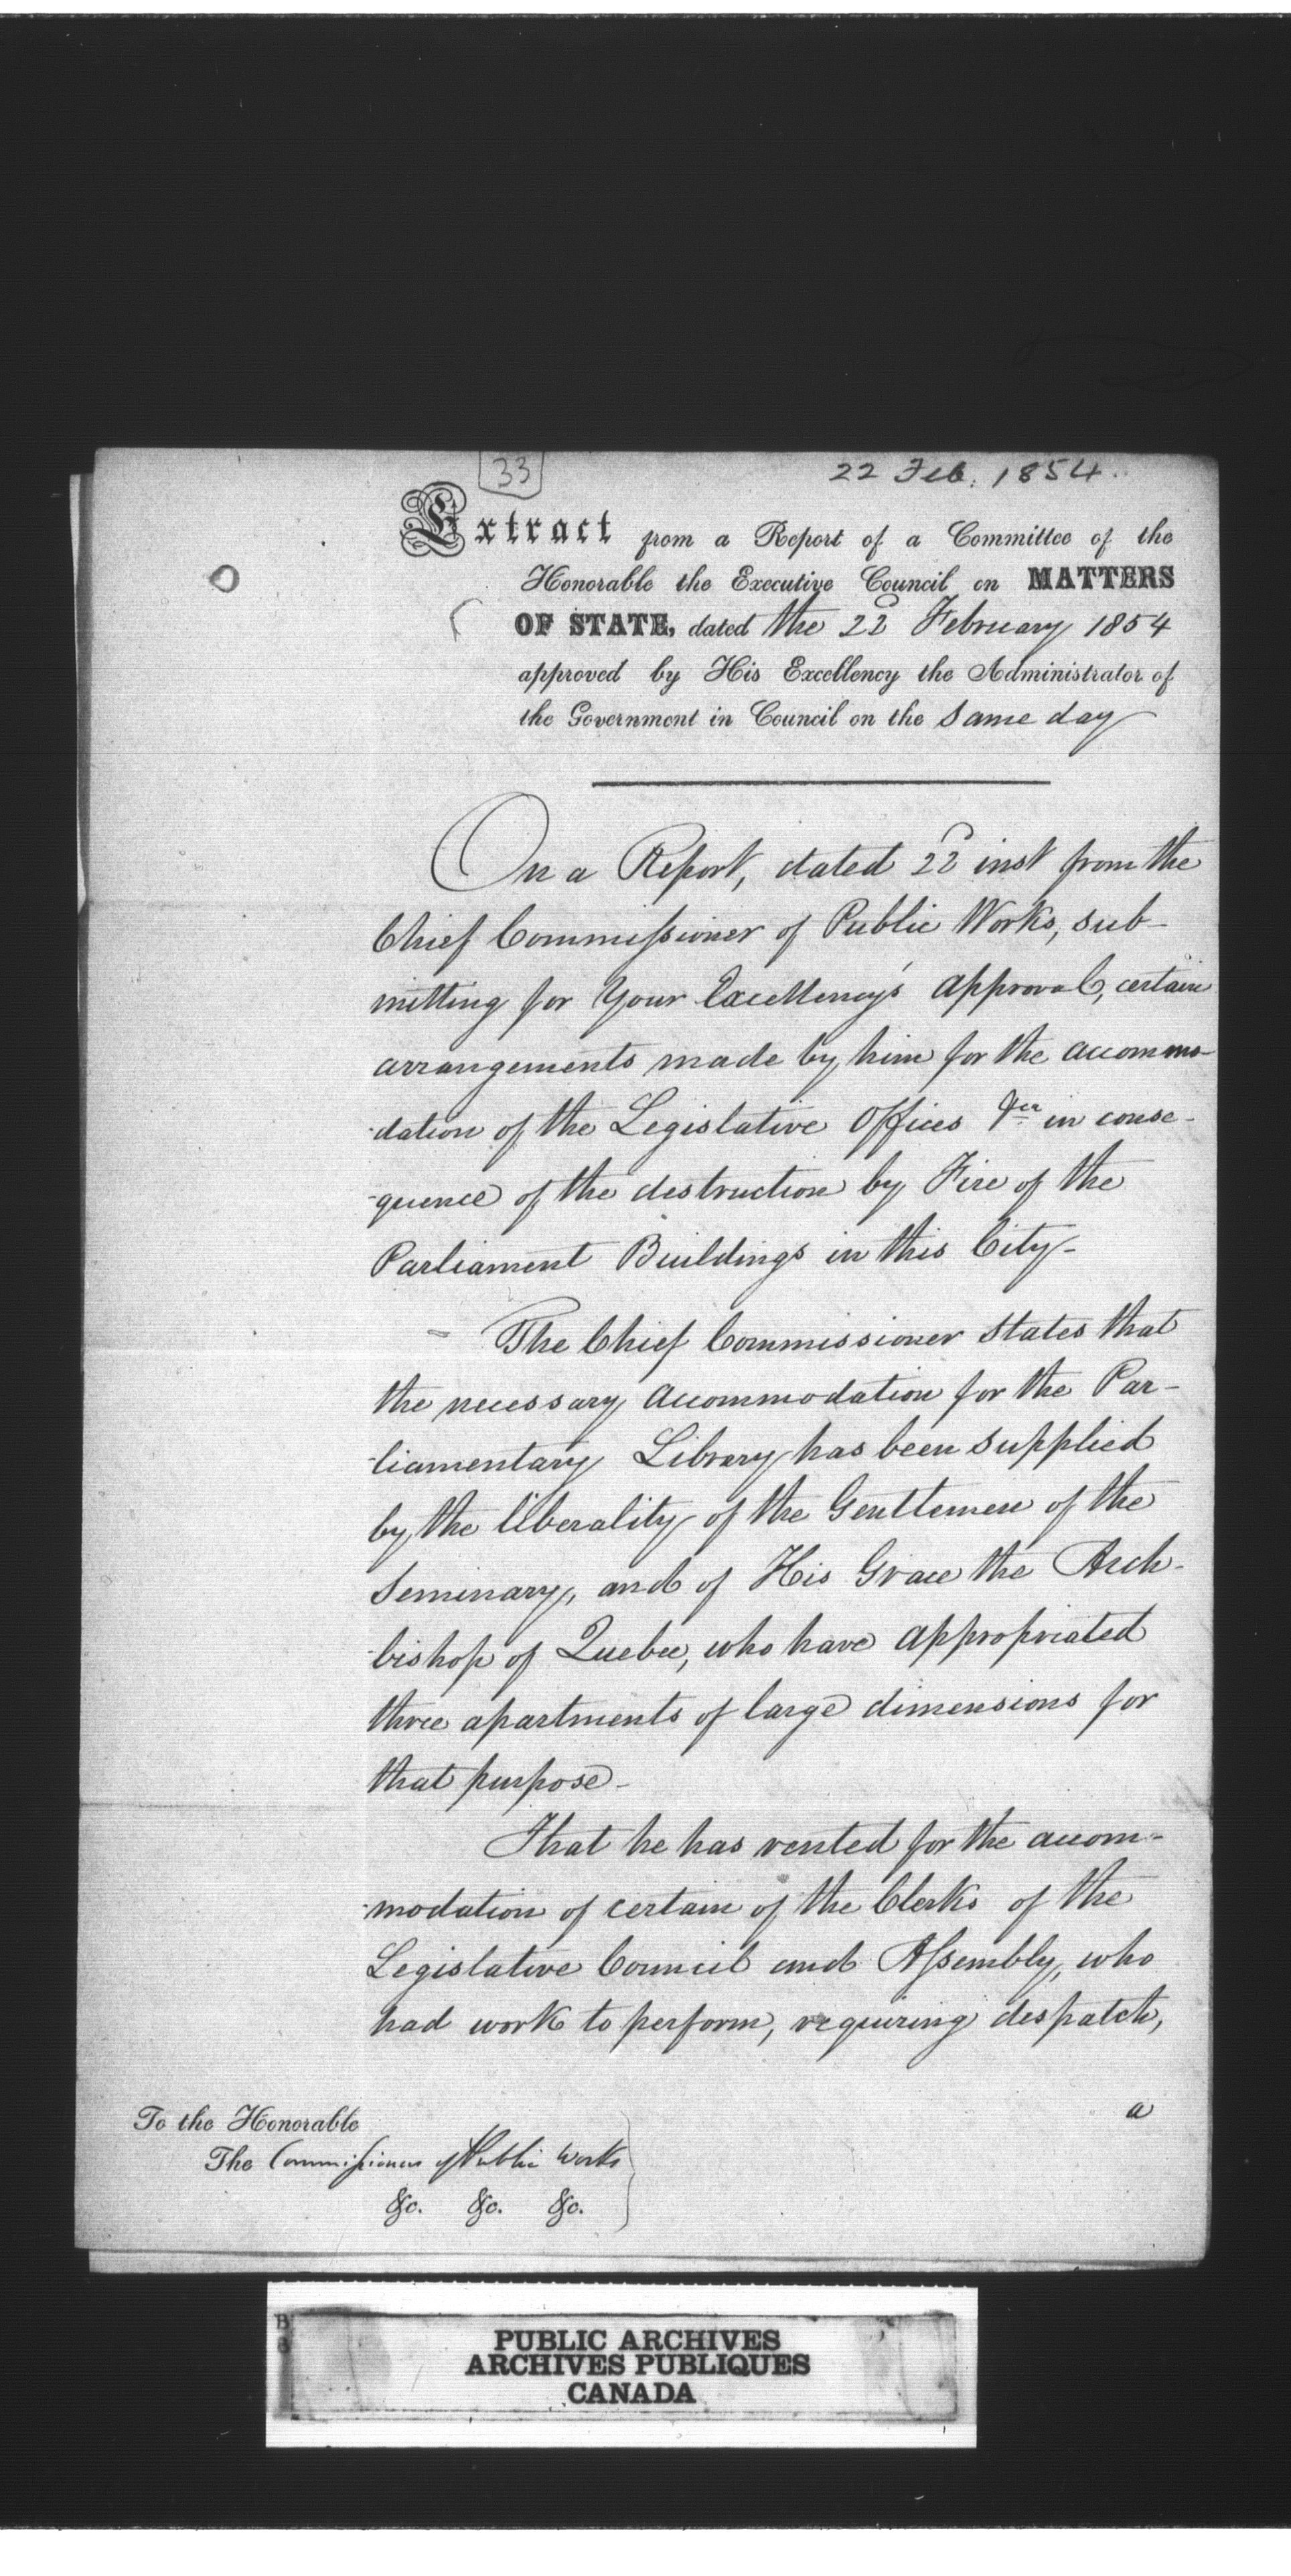 33
22 Feb. 1854.
Extract from a Report of a Committee of the
Honorable the Executive Council on MATTERS
OF STATE, dated the 22d February 1854
approved by His Excellency the Administrator of
the Government in Council on the same day
On a Report, dated 22d inst from the
Chief Commissioner of Public Works, sub-
mitting for Your Excellency's approval, certain
arrangements made by him for the accommo-
-dation of the Legislative Offices &ca in conse-
-quence of the destruction by Fire of the
Parliament Buildings in this City-
- The Chief Commissioner states that
the necessary accommodation for the Par-
-liamentary Library has been supplied
by the liberality of the Gentlemen of the
Seminary, and of His Grace the Arch-
-bishop of Quebec, who have appropriated
three apartments of large dimensions for
that purpose-
That he has rented for the accom-
-modation of certain of the Clerks of the
Legislative Council and Assembly, who
had work to perform, requiring despatch,
a
To the Honorable
The Commissioners of Public Works
&c. &c. &c.
PUBLIC ARCHIVES
ARCHIVES PUBLIQUES
CANADA